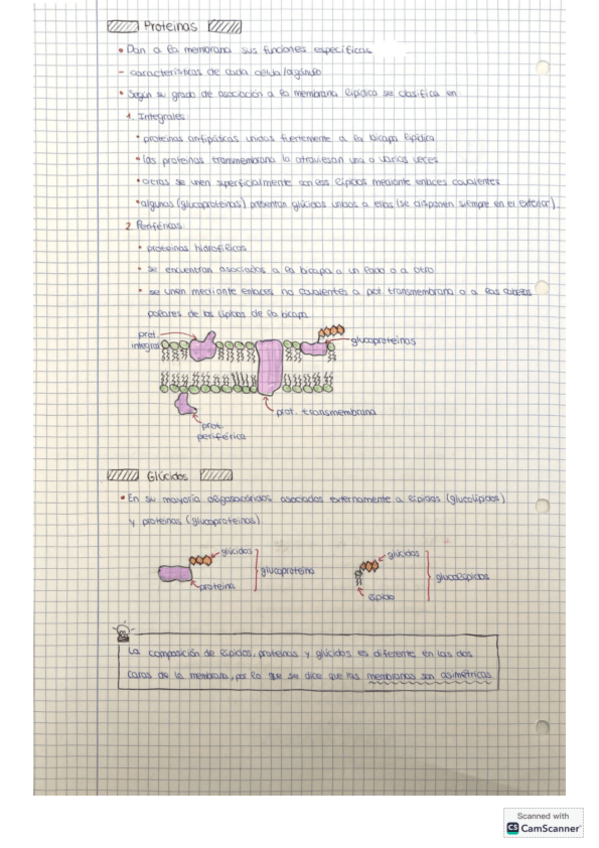 Proteínas
• Dan a la membrana sus funciones específicas
- características de cada célula/orgánulo
• Según su grado de asociación a la membrana lipídica se clasifica en
1. Integrales
• proteínas anfipáticas unidas fuertemente a la bicapa lipídica
• las proteínas transmembrana la atraviesan una o varias veces
• otras se unen superficialmente con los lípidos mediante enlaces covalentes
• algunas (glucoproteínas) presentan glúcidos unidos a ellas (se disponen siempre en el exterior)
2. Periféricas
• proteínas hidrofílicas
• se encuentran asociadas a la bicapa a un lado o a otro
• se unen mediante enlaces no covalentes a prot. transmembrana o a las cabezas
polares de los lípidos de la bicapa
prot.
integral
glucoproteínas
prot. transmembrana
prot.
periférica
Glúcidos
• En su mayoría oligosacáridos asociados externamente a lípidos (glucolípidos)
y proteínas (glucoproteínas)
glúcidos
proteína
glucoproteína
glúcidos
lípido
glucolípidos
La composición de lípidos, proteínas y glúcidos es diferente en las dos
caras de la membrana, por lo que se dice que las membranas son asimétricas
Scanned with
CS CamScanner